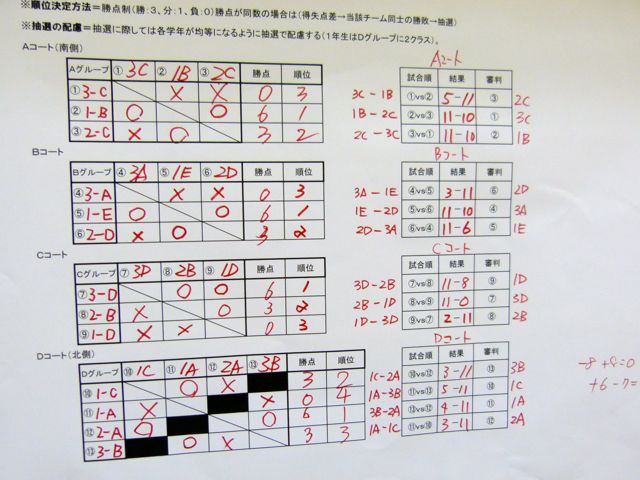 ※順位決定方法＝勝点制(勝:3、分:1、負:0)勝点が同数の場合は(得失点差→当該チーム同士の勝敗→抽選)
※抽選の配慮＝抽選に際しては各学年が均等になるように抽選で配慮する(1年生はDグループに2クラス)。
Aコート(南側)
Aグループ ①3C ②1B ③2C 勝点 順位
①3-C × × 0 3
②1-B ○ ○ 6 1
③2-C × ○ 3 2
Aコート
試合順 結果 審判
3C-1B ①vs② 5-11 ③ 2C
1B-2C ②vs③ 11-10 ① 3C
2C-3C ③vs① 11-10 ② 1B
Bコート
Bグループ ④3A ⑤1E ⑥2D 勝点 順位
④3-A × × 0 3
⑤1-E ○ ○ 6 1
⑥2-D × ○ 3 2
Bコート
試合順 結果 審判
3A-1E ④vs⑤ 3-11 ⑥ 2D
1E-2D ⑤vs⑥ 11-10 ④ 3A
2D-3A ⑥vs④ 11-6 ⑤ 1E
Cコート
Cグループ ⑦3D ⑧2B ⑨1D 勝点 順位
⑦3-D ○ ○ 6 1
⑧2-B × ○ 3 2
⑨1-D × × 0 3
Cコート
試合順 結果 審判
3D-2B ⑦vs⑧ 11-8 ⑨ 1D
2B-1D ⑧vs⑨ 11-0 ⑦ 3D
1D-3D ⑨vs⑦ 2-11 ⑧ 2B
Dコート(北側)
Dグループ ⑩1C ⑪1A ⑫2A ⑬3B 勝点 順位
⑩1-C ○ × 3 2
⑪1-A × × 0 4
⑫2-A ○ ○ 6 1
⑬3-B ○ × 3 3
Dコート
試合順 結果 審判
1C-2A ⑩vs⑫ 3-11 ⑬ 3B
1A-3B ⑪vs⑬ 5-11 ⑩ 1C
3B-2A ⑬vs⑫ 4-11 ⑪ 1A
1A-1C ⑪vs⑩ 3-11 ⑫ 2A
-8+8=0
+6-7=